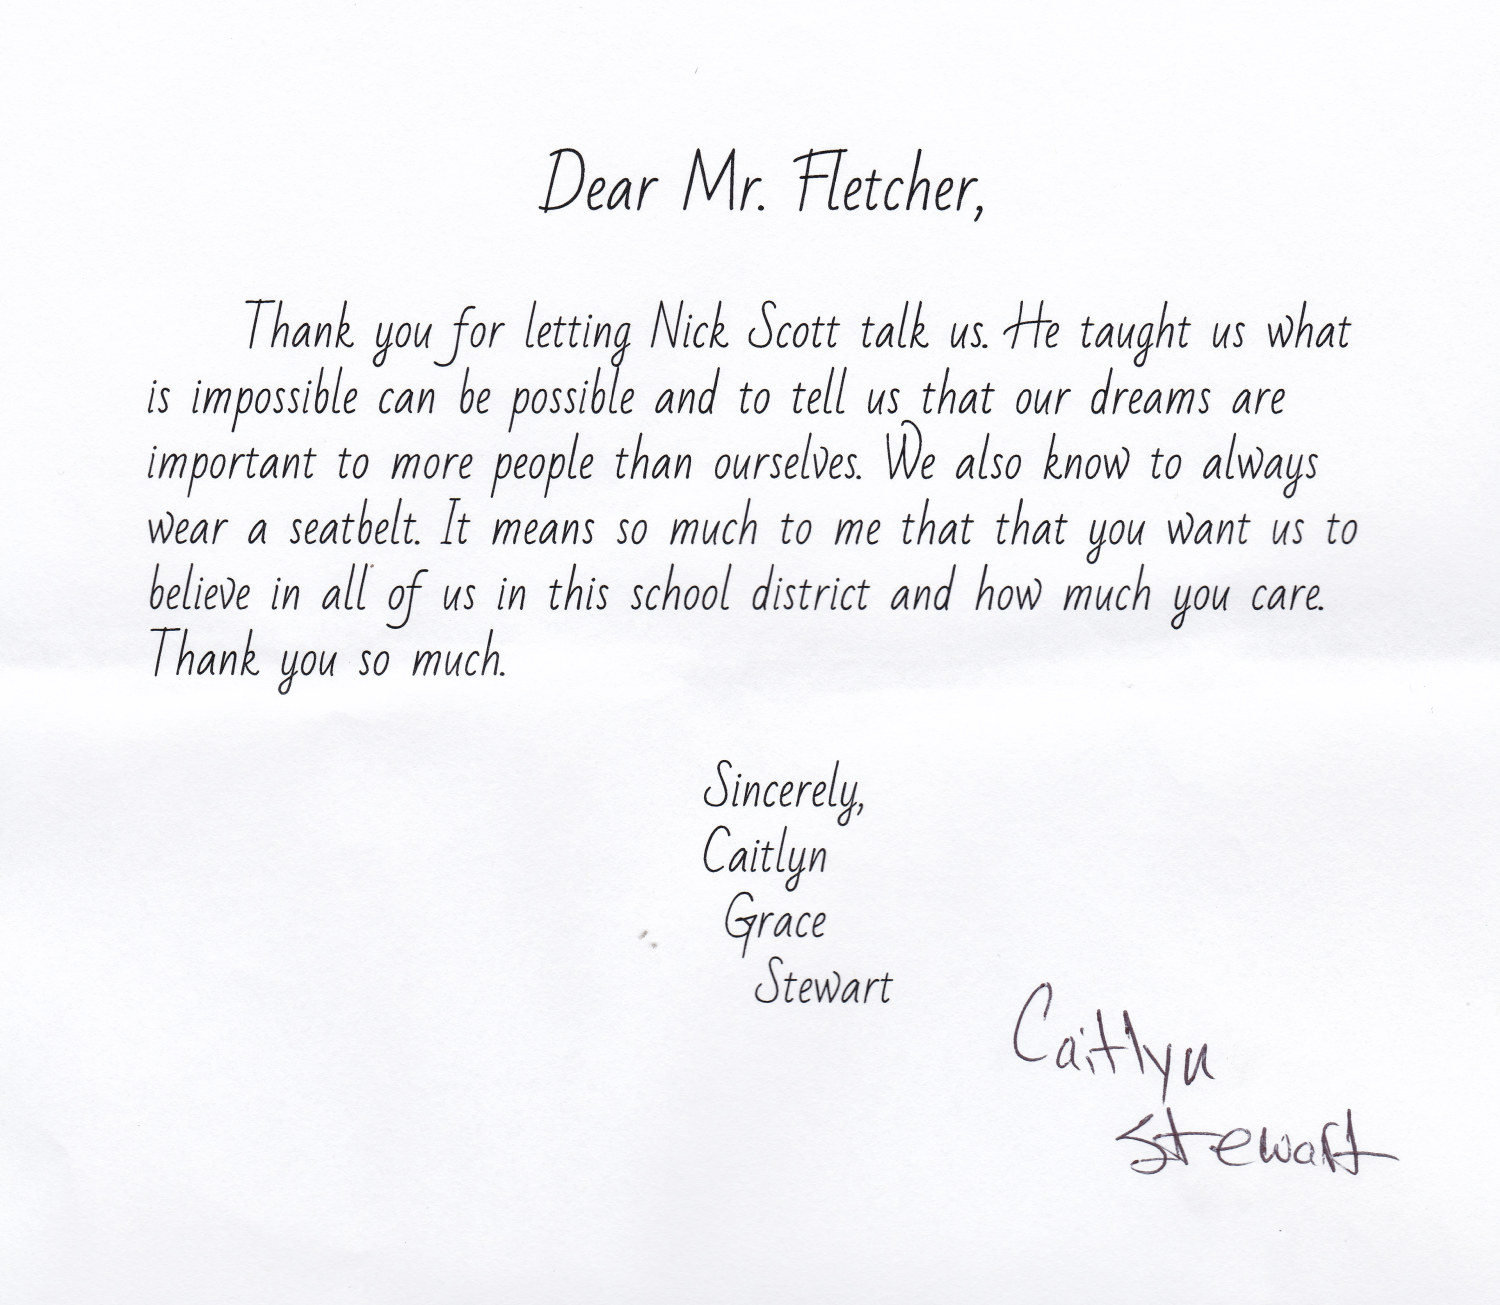 Dear Mr. Fletcher,
Thank you for letting Nick Scott talk us. He taught us what
is impossible can be possible and to tell us that our dreams are
important to more people than ourselves. We also know to always
wear a seatbelt. It means so much to me that that you want us to
believe in all of us in this school district and how much you care.
Thank you so much.
Sincerely,
Caitlyn
Grace
Stewart
Caitlyn
Stewart